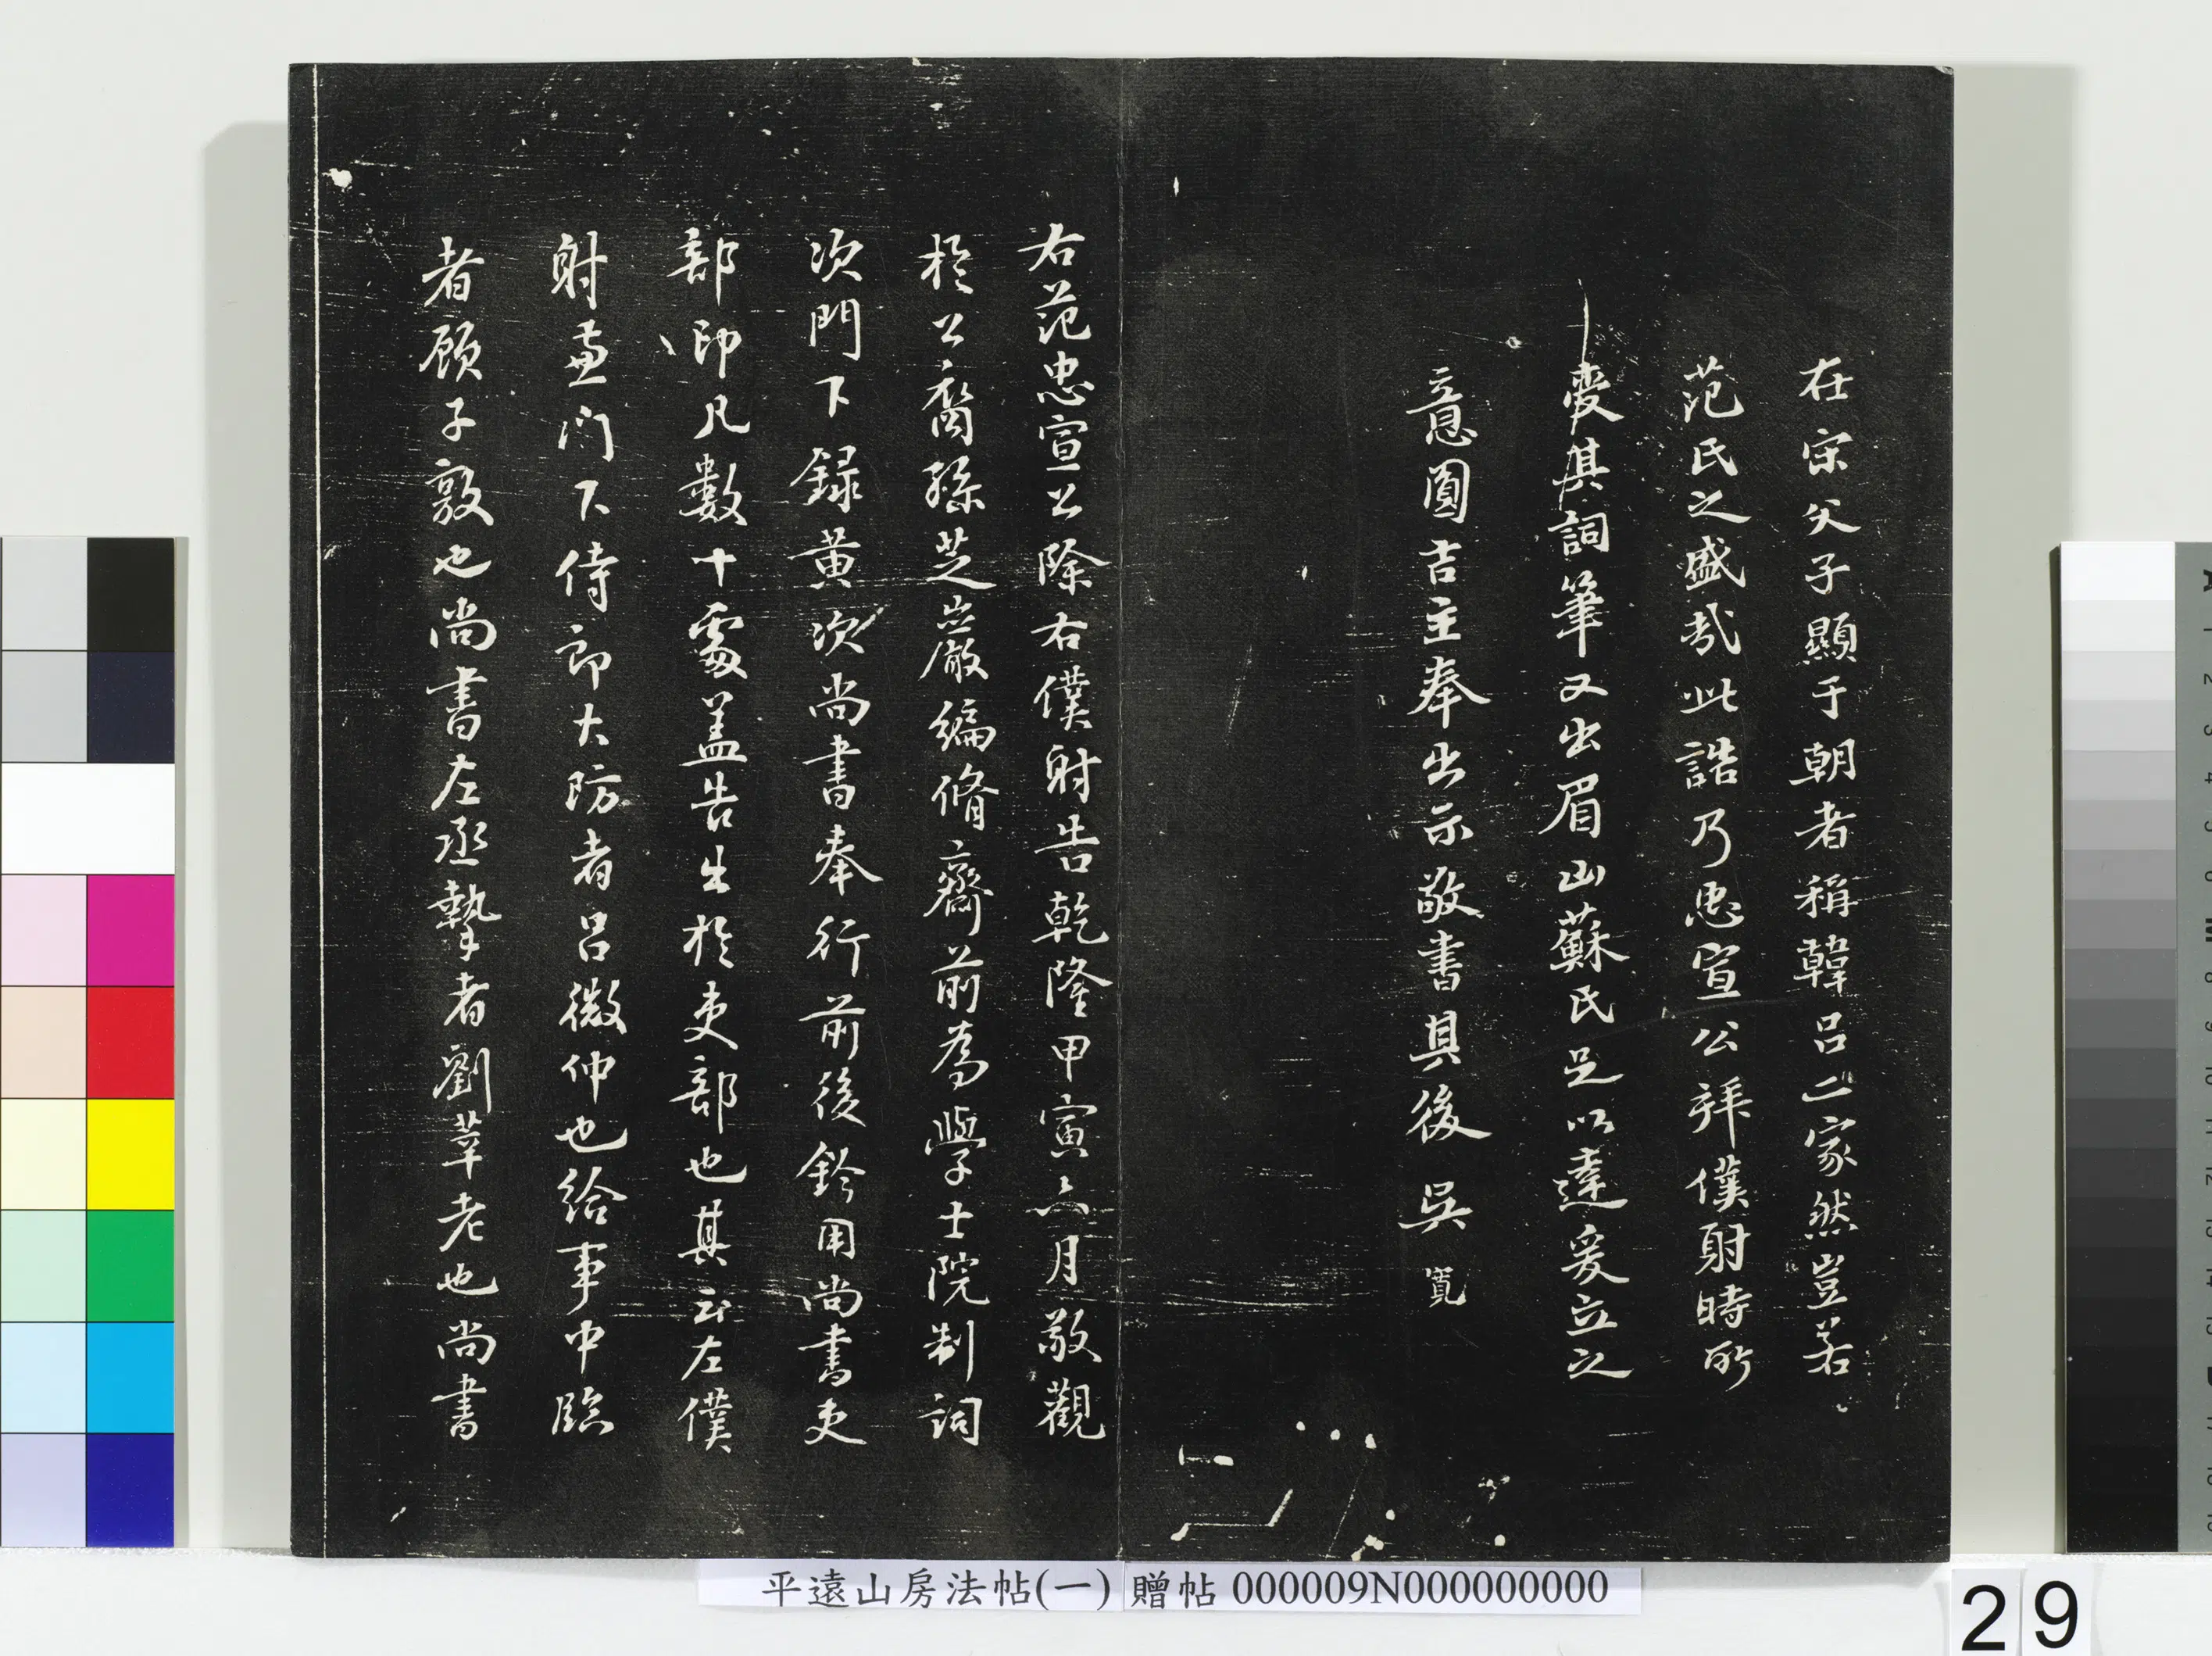 在宋父子顯于朝者稱韓呂二家然豈若
范氏之盛哉此誥乃忠宣公拜僕射時所
受其詞筆又出眉山蘇氏足以達爰立之
意圓吉主奉出示敬書其後 吳寬
右范忠宣公除右僕射告乾隆甲寅六月敬觀
於公裔孫芝巖編脩齋前為學士院制詞
次門下録黃次尚書奉行前後鈐用尚書吏
部印凡數十處盖告出於吏部也其云左僕
射兼门下侍郎大防者呂微仲也給事中臨
者顧子敦也尚書左丞摯者劉莘老也尚書
平遠山房法帖(一) 贈帖 000009N000000000
29